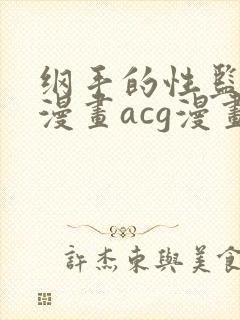 纲手的性監
漫畫acg漫畫
許杰東與美食